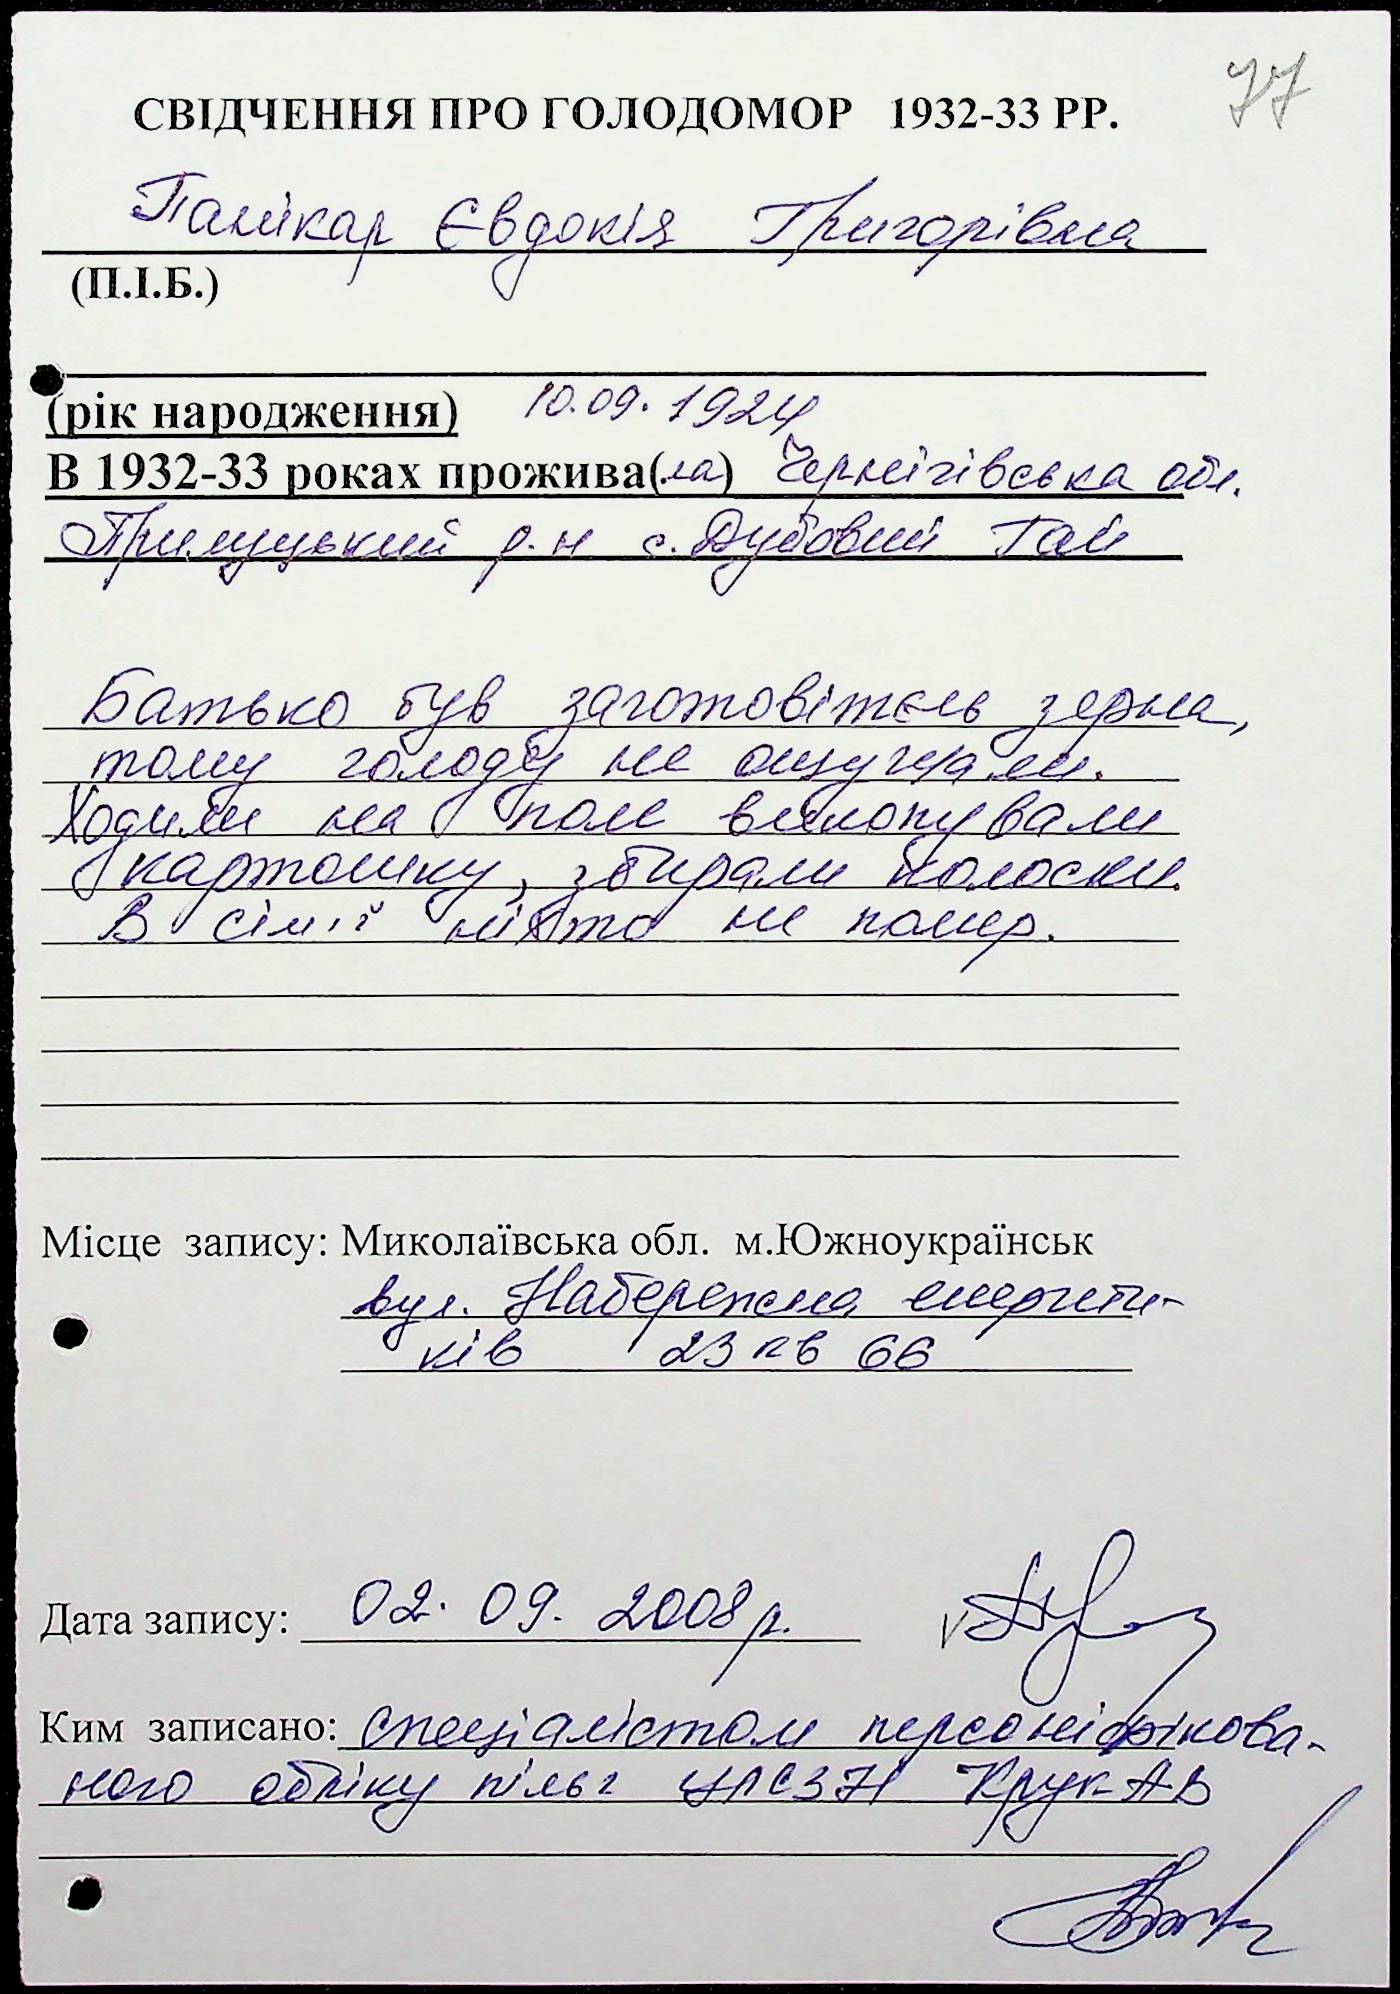 77
СВІДЧЕННЯ ПРО ГОЛОДОМОР 1932-33 РР.
Панікар Євдокія Григорівна
(П.І.Б.)
(рік народження) 10.09.1924
В 1932-33 роках прожива(ла) Чернігівська обл.
Прилуцький р-н с. Дубовий Гай
Батько був заготовітєль зерна,
тому голоду не ощущали.
Ходили на поле викопували
картошку, збирали колоски.
В сім'ї ніхто не помер.
Місце запису: Миколаївська обл. м.Южноукраїнськ
вул. Набережна енергети-
ків 23 кв 66
Дата запису: 02.09.2008р.
Ким записано: спеціалістом персоніфікова-
ного обліку пільг УПСЗН Крук АВ